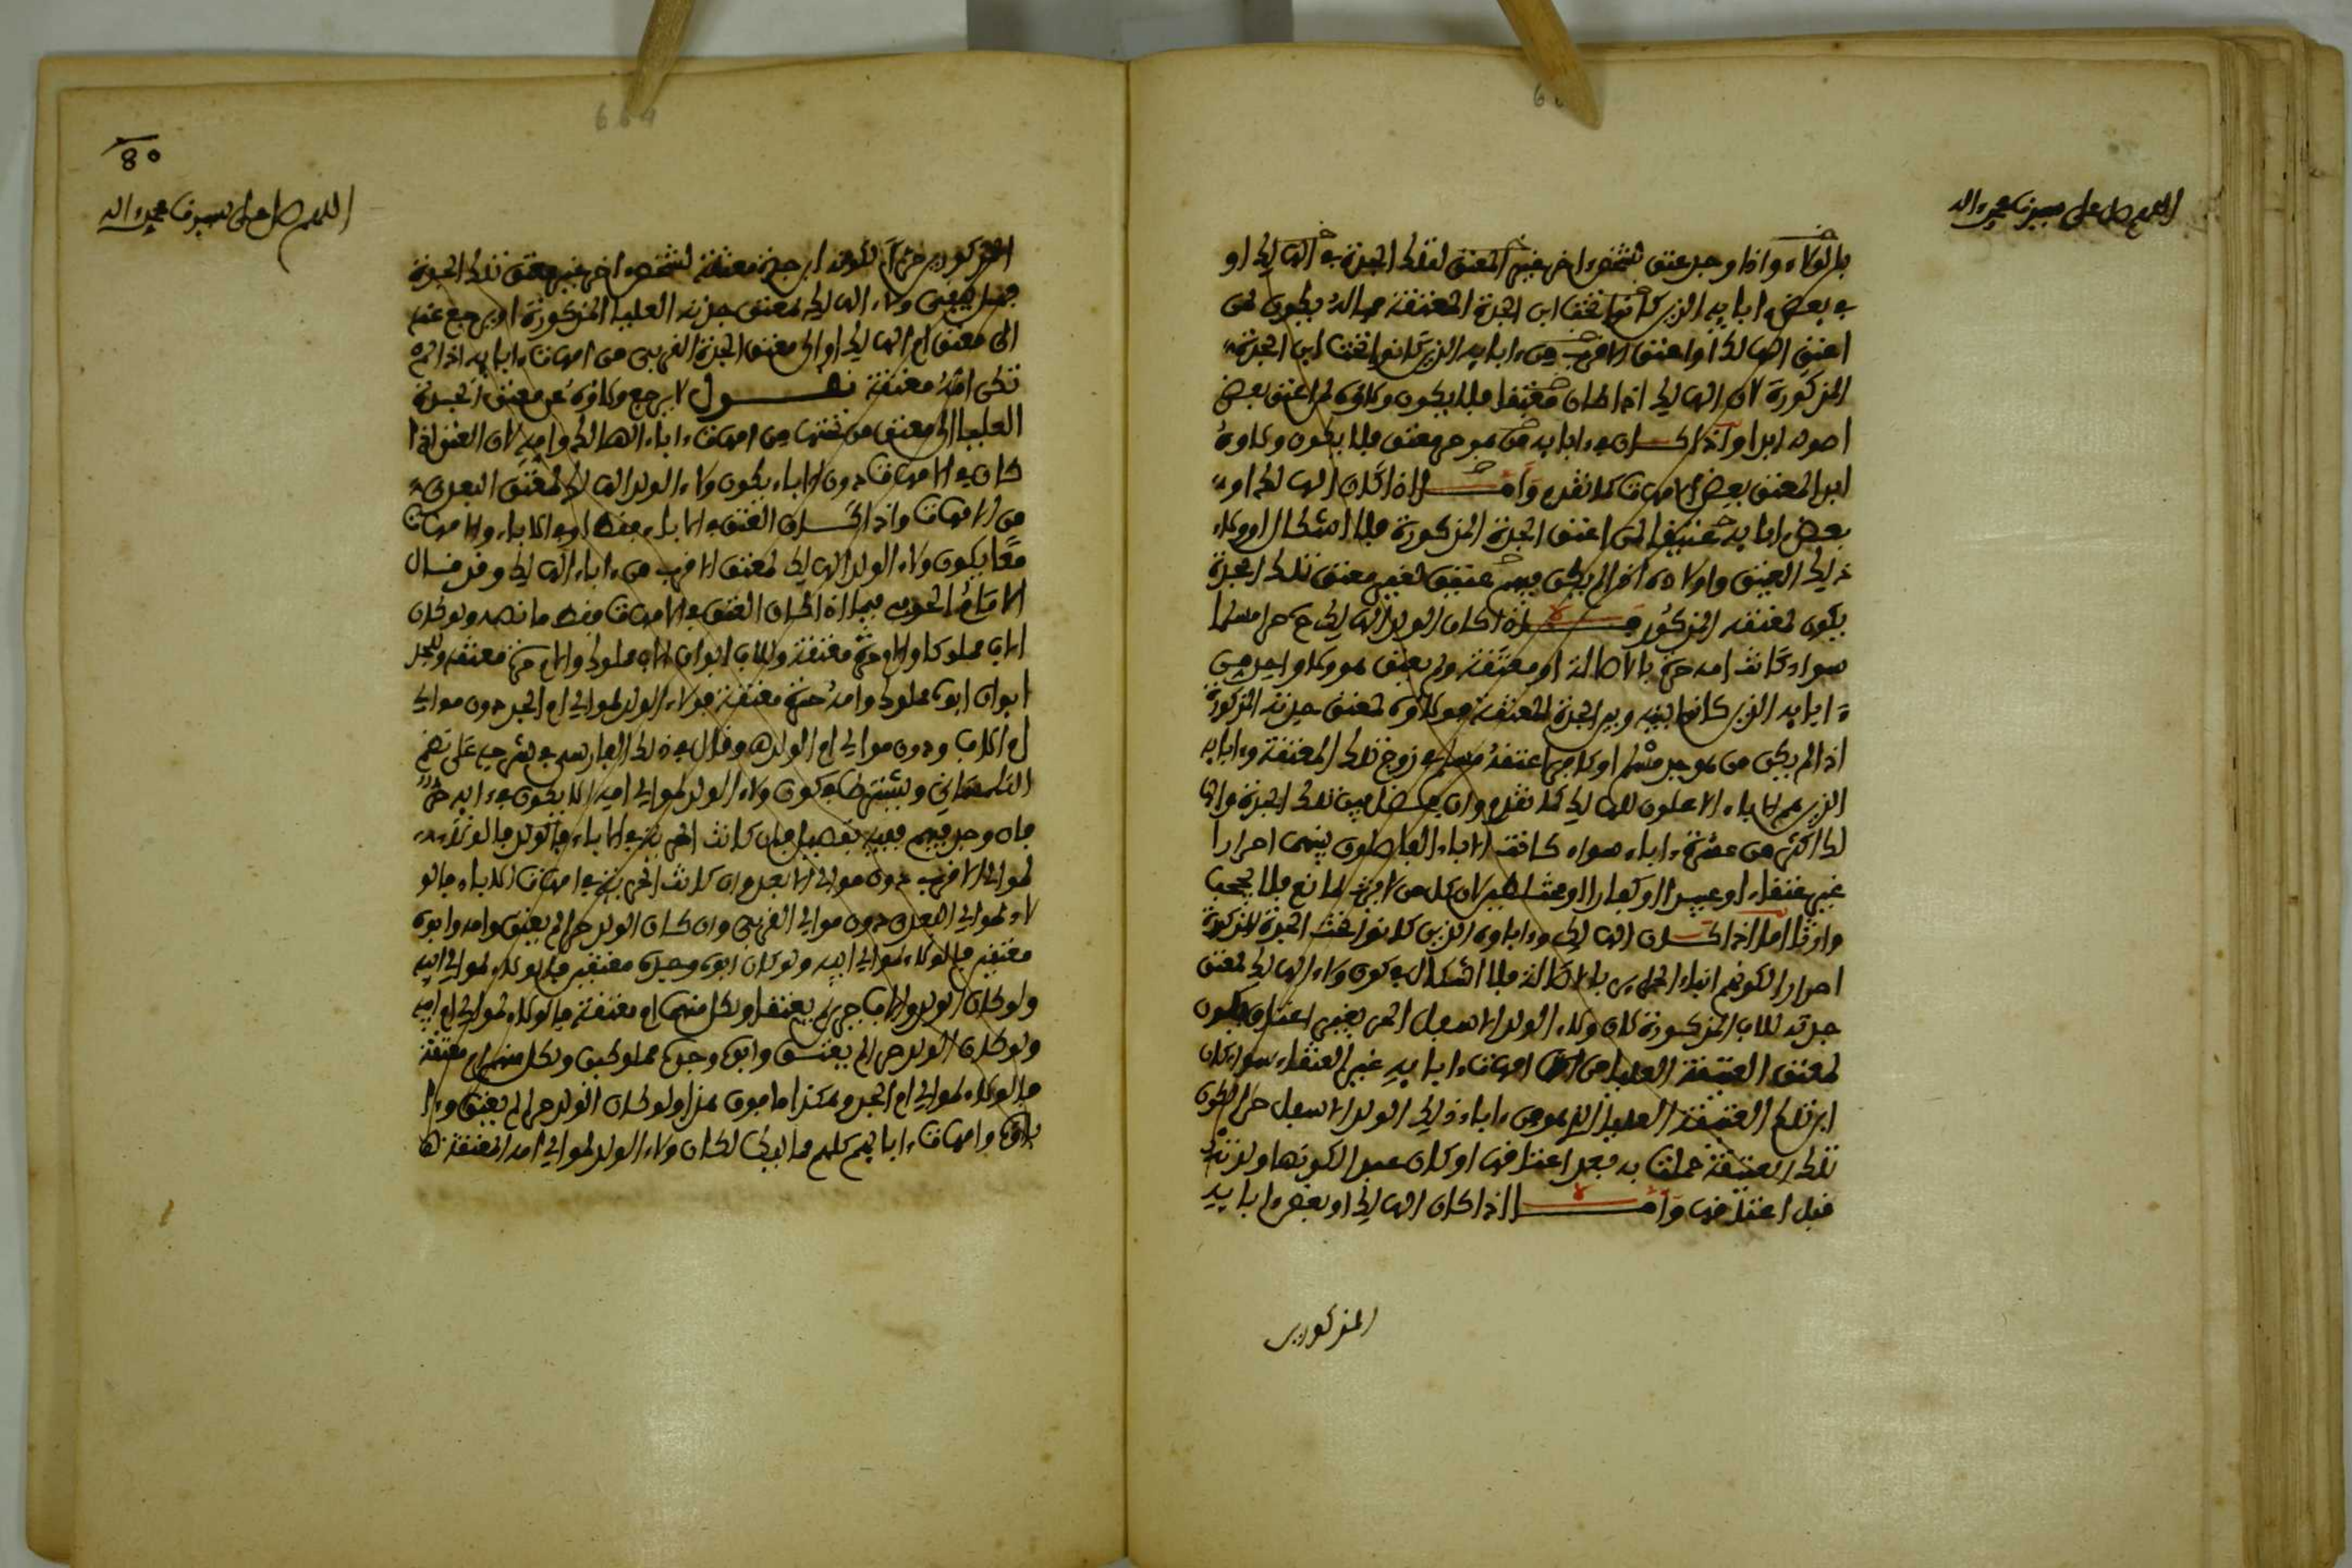 اللهم صل على سيدنا محمد واله
بالولاء واذا وجد عتق لشخص اخر غير المعتق لتلك الجدة في الهالك او
في بعض ابايه الذين كانوا تحت ابن الجدة المعتقة فماله يكون لمن
اعتق الهالك او اعتق الاقرب من ءابايه الذين كانوا تحت ابن الجدة
المذكورة لان الهالك اذا كان معتقا فلا يكون ولاؤه لمن اعتق بعض
اصوله ابدا واذا كان في ءابايه من هو حر معتق فلا يكون ولاوه
ابدا لمعتق بعض الامهات كما تقدم واما اذا كان الهالك او
بعض ابايه عتيقا لمن اعتق الجدة المذكورة فلا اشكال وولاء
ذلك العتيق واولاده اذا لم يكن فيهم عتيق لغير معتق تلك الجدة
يكون لمعتقه المذكور اذا كان الولد الهالك ح حرا مسلما
سواء كانت امه حرة بالاصالة او معتقة ولم يعتق هو ولا واحد من
ءابايه الذين كانوا بينه وبين الجدة المعتقة فولاؤه لمعتق جدته المذكورة
اذا لم يكن من هو حر مسلم او كافر اعتقه مسلم في زوج تلك المعتقة وءابايه
الذين هم الاباء الاعلون للهالك كما تقدم وان فصل بين تلك الجدة والها
لك اكثر من عشرة ءاباء سواء كانت الاباء الفاصلون بينهما احرارا
غير عتقاء او عبيدا او كفارا او مختلطين لان كل من لا يرث لمانع فلا يحجب
وارثا اما اذا كان الهالك وءاباوه الذين كانوا تحت الجدة المذكورة
احرارا لكونهم ابناء الحراير بالاصالة فلا اشكال في كون ولاء الهالك لمعتق
جدته للاب المذكورة لان ولاء الولد الاسفل الحر بغير اعتاق يكون
لمعتق العتيقة العليا من امهات ءابايه غير العتقاء سواء كان
ابن تلك العتيقة العليا الذي هو من ءاباء ذلك الولد الاسفل حرا لكون
تلك العتيقة حملت به بعد اعتاقها او كان عبدا لكونها ولدته
قبل اعتاقها واما اذا كان الهالك او بعض ءابايه
المذكورين
80
اللهم صل على سيدنا محمد واله
المذكورين حرا لكونه ابن حرة معتقة لشخص اخر غير معتق تلك الجدة
فهل يبقى ولاء الهالك لمعتق جدته العليا المذكورة او يرجع عنه
الى معتق ام الهالك او الى معتق الجدة القربى من امهات ءابايه اذا لم
تكن امه معتقة نقول لا يرجع ولاؤه عن معتق الجدة
العليا الى معتق من تحتها من امهات ءاباء الهالك وامه لان العتق اذا
كان في الامهات دون الاباء يكون ولاء الولد الهالك لمعتق البعدى
من الامهات واذا كان العتق في الاباء فقط او في الاباء والامهات
معا يكون ولاء الولد الهالك لمعتق الاقرب من ءاباء الهالك وقد قال
الامام الحوفي فيما اذا كان العتق في الامهات فقط ما نصه ولو كان
الاب مملوكا والام حرة معتقة وللاب ابوان الاب مملوك والام حرة معتقة وللجد
ابوان ابوه مملوك وامه حرة معتقة فولاء الولد لموالي ام الجد دون موالي
ام الاب ودون موالي ام الولد اه وقال في ذلك الفارسي في شرحه على نظم
التلمساني ويشترط في كون ولاء الولد لموالي امه الا يكون في ءابايه حر
فان وجد فيهم ففيه تفصيل فان كانت الحرية في الاباء فالولد فالولاء
لموالي الاقرب دون موالي الابعد وان كانت الحرية في امهات الاباء فالو
لاء لموالي البعدى دون موالي القربى وان كان الولد حرا لم يعتق وامه وابوه
معتقين فالولاء لموالي ابيه ولو كان ابوه وجده معتقين فالولاء لموالي ابيه
ولو كان الولد والاب حرين لم يعتقا ولكل منهما ام معتقة فالولاء لموالي ام ابيه
ولو كان الولد حرا لم يعتق وابوه وجده مملوكين ولكل منهم ام معتقة
فالولاء لموالي ام الجد وهكذا ما فوق هذا ولو كان الولد حرا لم يعتق وءا
باؤه وامهات ءابايهم كلهم مماليك لكان ولاء الولد لموالي امه المعتقة